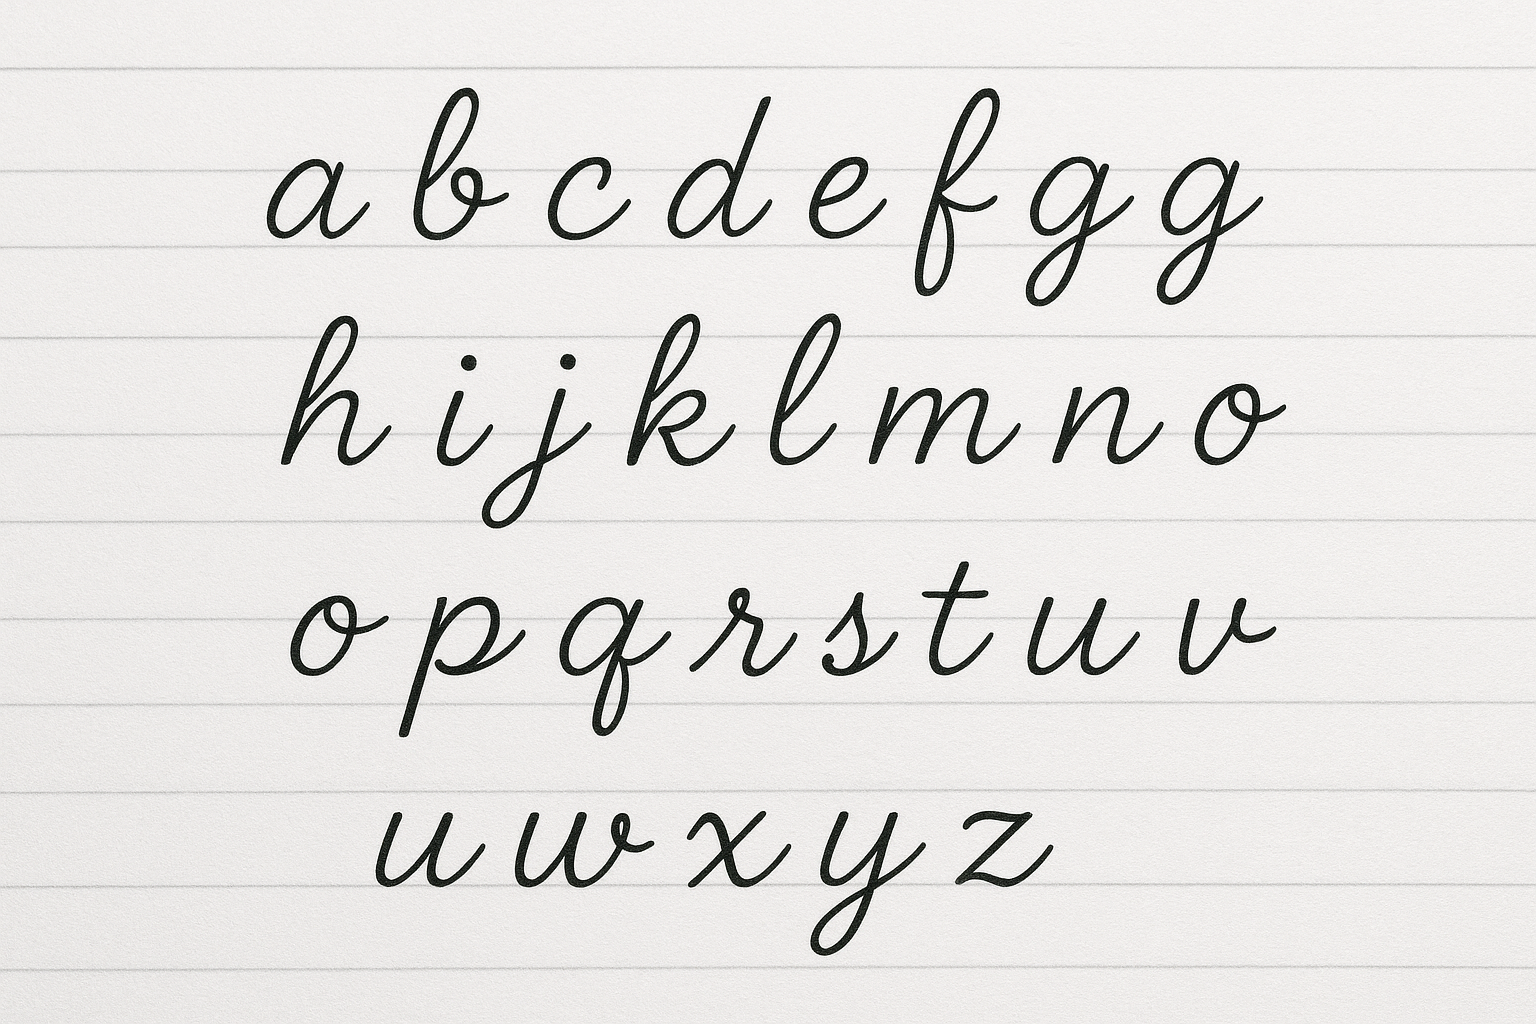 a b c d e f g g
h i j k l m n o
o p q r s t u v
u w x y z